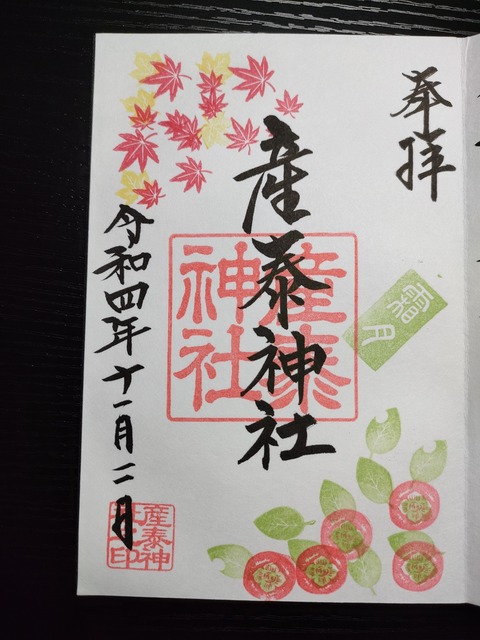 奉拝
霜月
産泰神社
産泰
神社
令和四年十一月二日
産泰神